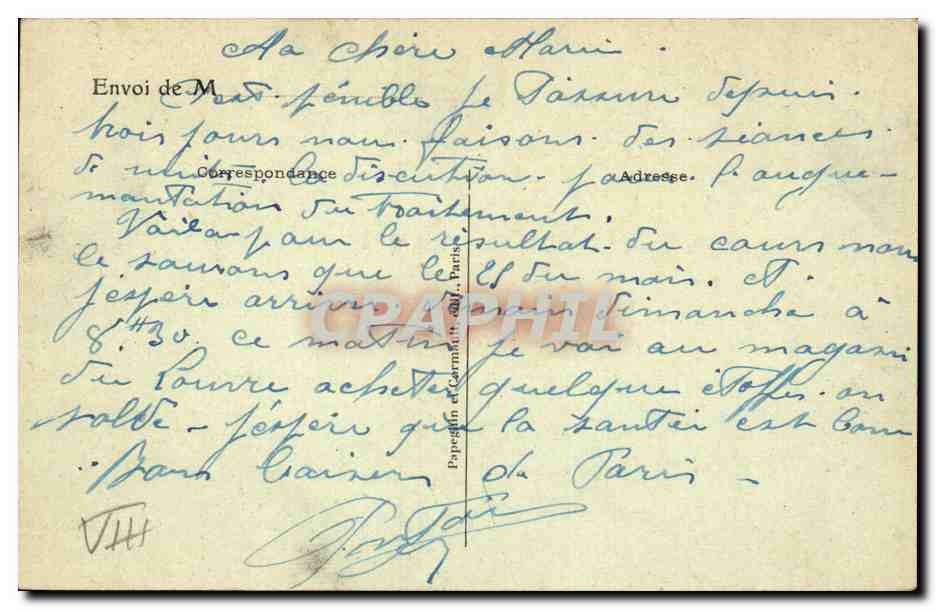 Ma chère Marie.
Envoi de M
C'est pénible je t'assure depuis.
trois jours nous faisons des séances.
de nuit la discution. pour l'augue-
Correspondance
Adresse.
mantation du traitement.
Voila pour le résultat du cours nous
le saurons que le 25 du mois. et.
j'espère arriver demain dimanche à
8.H30. ce matin je vai au magasin
du Louvre acheter quelque étoffe. en
solde - j'espère que la santée est bonne
Bons baisers de Paris -
VIII
Papeghin et Cormault, édit., Paris
CRAPHIL